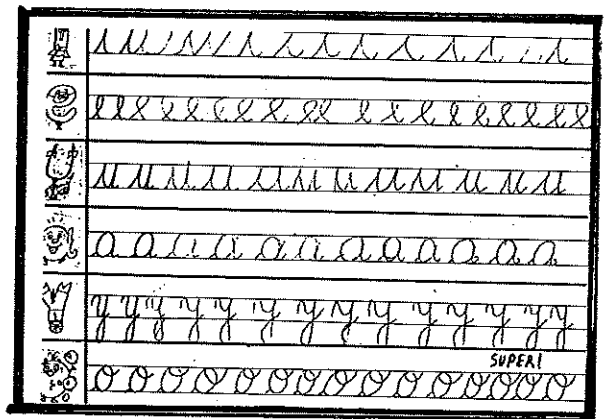 i i i i i i i i i i i i i i
e e e e e e e e e e e e e e e e e e e
u u u u u u u u u u u u
a a a a a a a a a a a a
y y y y y y y y y y y y y y
SUPER!
o o o o o o o o o o o o o o o